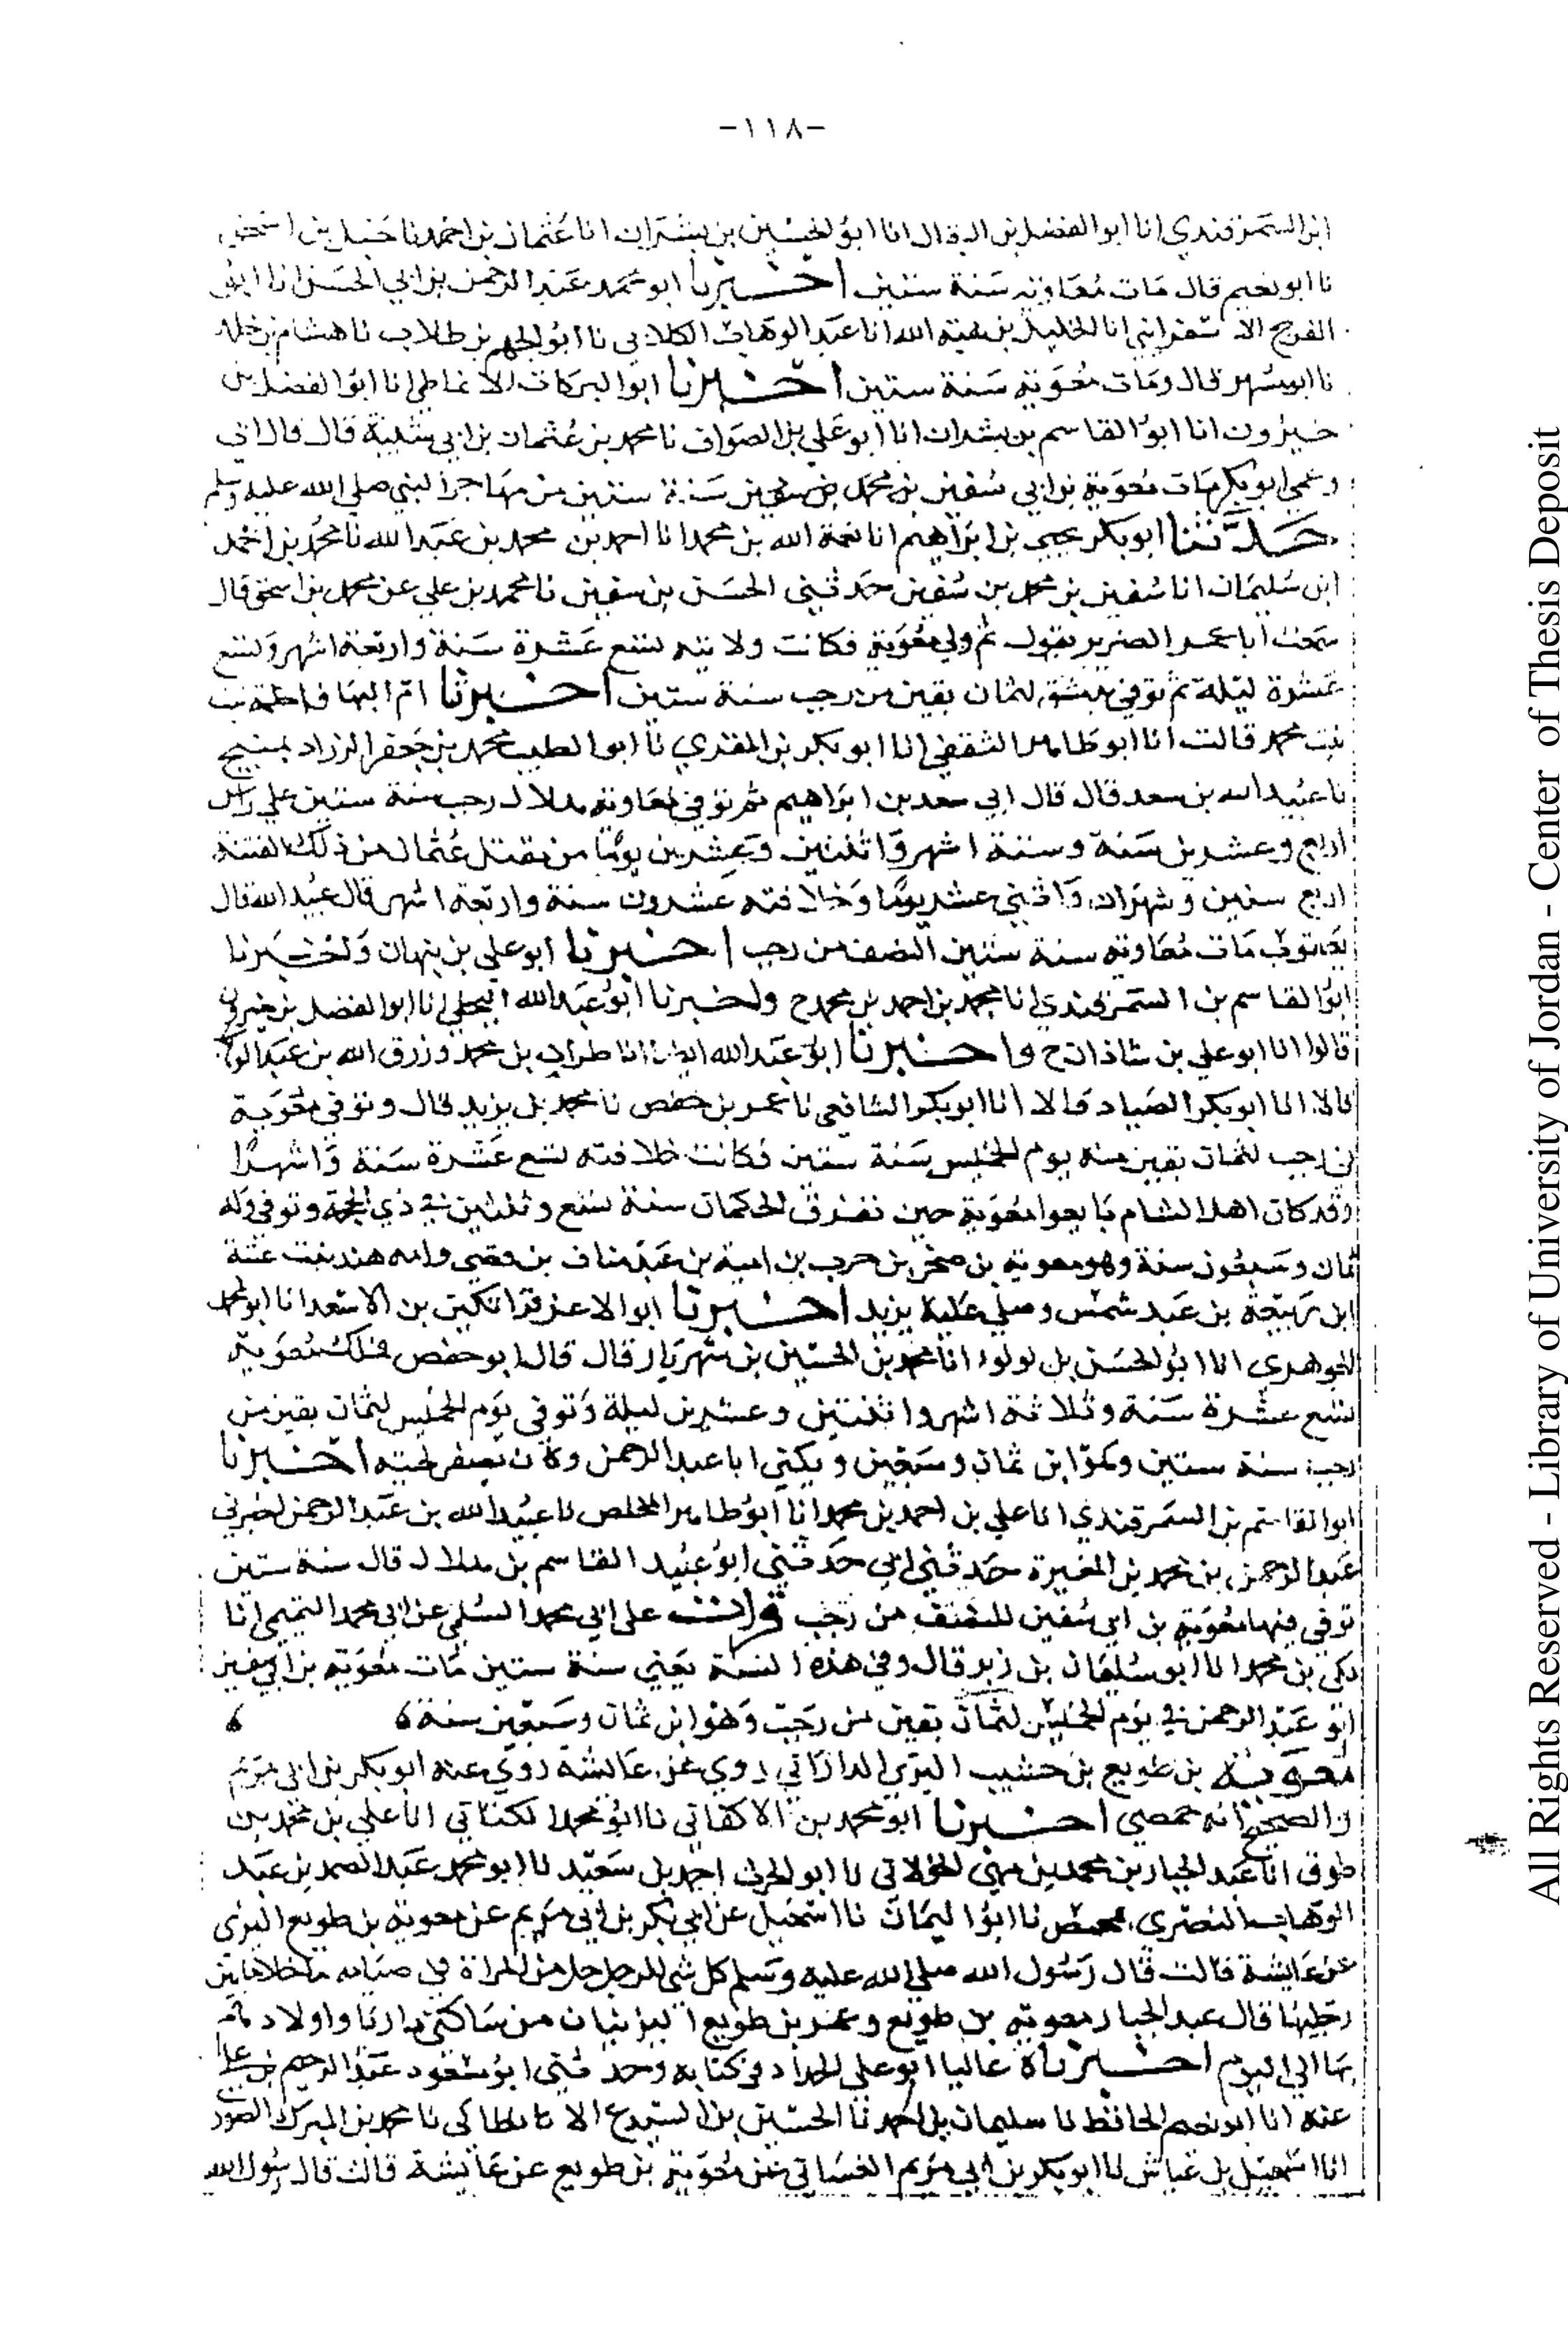 -١١٨-
ابن السمرقندي انا ابو الفضل بن البقال انا ابو الحسين بن بشران انا عثمان بن احمد نا حنبل بن اسحق
نا ابو نعيم قال مات معاوية سنة ستين اخبرنا ابو محمد عبد الرحمن بن ابي الحسن انا ابو
الفرج الاسفرايني انا الخليل بن هبة الله انا عبد الوهاب الكلابي نا ابو الجهم بن طلاب نا هشام بن خلد
نا ابو مسهر قال ومات معوية سنة ستين اخبرنا ابو البركات الانماطي انا ابو الفضل بن
خيرون انا ابو القاسم بن بشران انا ابو علي بن الصواف نا محمد بن عثمان بن ابي شيبة قال قال ابي
وعمي ابو بكر مات معوية بن ابي سفين سنة ستين من مهاجر النبي صلى الله عليه وسلم
حدثنا ابو بكر يحيى بن ابراهيم انا نعمة الله بن محمد انا احمد بن محمد بن عبد الله نا محمد بن احمد
ابن سليمان انا سفين بن محمد بن سفين حدثني الحسن بن سفين نا محمد بن علي عن محمد بن اسحق قال
سمعت ابا عمر الضرير يقول ثم ولي معوية فكانت ولايته تسع عشرة سنة واربعة اشهر وتسع
عشرة ليلة ثم توفي بدمشق لثمان بقين من رجب سنة ستين اخبرنا ام البها فاطمة بنت
بنت محمد قالت انا ابو طاهر الثقفي انا ابو بكر بن المقري نا ابو الطيب محمد بن جعفر الزراد بمنبج
نا عبيد الله بن سعد قال قال ابي سعد بن ابراهيم ثم توفي معاوية هلال رجب سنة ستين على راس
اربع وعشرين سنة وستة اشهر واثنين وعشرين يوما من مقتل عثمان من ذلك الفتنة
اربع سنين وشهران واثني عشر يوما وخلافته عشرون سنة واربعة اشهر قال عبيد الله قال
يعقوب مات معاوية سنة ستين النصف من رجب اخبرنا ابو علي بن نبهان واخبرنا
ابو القاسم بن السمرقندي انا محمد بن احمد بن محمد ح واخبرنا ابو عبد الله البجلي انا ابو الفضل بن خيرون
قالوا انا ابو علي بن شاذان ح واخبرنا ابو عبد الله ايضا انا طراد بن محمد ورزق الله بن عبد الو
قالا انا ابو بكر الصياد قالا انا ابو بكر الشافعي نا عمر بن حفص نا محمد بن يزيد قال وتوفي معوية
في رجب لثمان بقين منه يوم الخميس سنة ستين فكانت خلافته تسع عشرة سنة واشهرا
وقد كان اهل الشام بايعوا معوية حين تفرق الحكمان سنة سبع وثلثين في ذي الحجة وتوفي وله
ثمان وسبعون سنة وهو معوية بن صخر بن حرب بن امية بن عبد مناف بن قصي وامه هند بنت عتبة
ابن ربيعة بن عبد شمس وصلى عليه يزيد اخبرنا ابو الاعز قراتكين بن الاسعد انا ابو محمد
الجوهري انا ابو الحسن بن لولو انا محمد بن الحسين بن شهريار قال قال ابو حفص فملك معوية
تسع عشرة سنة وثلاثة اشهر واثنتين وعشرين ليلة وتوفي يوم الخميس لثمان بقين من
رجب سنة ستين وهو ابن ثمان وسبعين ويكنى ابا عبد الرحمن وكان يصفر لحيته اخبرنا
ابو القاسم بن السمرقندي انا علي بن احمد بن محمد انا ابو طاهر المخلص نا عبيد الله بن عبد الرحمن اخبرني
عبد الرحمن بن محمد بن المغيرة حدثني ابي حدثني ابو عبيد القاسم بن سلام قال سنة ستين
توفي فيها معوية بن ابي سفين للنصف من رجب قرات على ابي محمد السلمي عن ابي محمد التميمي انا
مكي بن محمد انا ابو سليمان بن زبر قال وفي هذه السنة يعني سنة ستين مات معوية بن ابي سفين
ابو عبد الرحمن في يوم الخميس لثمان بقين من رجب وهو ابن ثمان وسبعين سنة ه ه
معوية بن طويع بن حشيب اليزني الداراني روى عن عائشة روى عنه ابو بكر بن ابي مريم
والصحيح انه حمصي اخبرنا ابو محمد بن الاكفاني نا ابو محمد الكتاني انا علي بن محمد بن
طوق انا عبد الجبار بن محمد بن مهنى الخولاني نا ابو الحرث احمد بن سعيد نا ابو محمد عبد الصمد بن عبد
الوهاب النصري بحمص نا ابو اليمان نا اسمعيل عن ابي بكر بن ابي مريم عن معوية بن طويع اليزني
عن عايشة قالت قال رسول الله صلى الله عليه وسلم كل شي للرجل حل من المراة في صيامه ما خلا ما بين
رجليها قال عبد الجبار معوية بن طويع وعمر بن طويع اليزنيان من ساكني داريا واولادهم
بها الى اليوم اخبرناه عاليا ابو علي الحداد في كتابه وحدثني ابو مسعود عبد الرحيم بن علي
عنه انا ابو نعيم الحافظ نا سليمان بن احمد نا الحسين بن السميدع الانطاكي نا محمد بن المبرك الصوري
انا اسمعيل بن عياش نا ابو بكر بن ابي مريم الغساني عن معوية بن طويع عن عائشة قالت قال رسول الله
All Rights Reserved - Library of University of Jordan - Center of Thesis Deposit